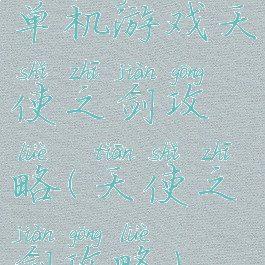 单机游戏天
shǐ zhī jiàn gōng
使之剑攻
lüè tiān shǐ zhī
略(天使之
jiàn gōng lüè
剑攻略)